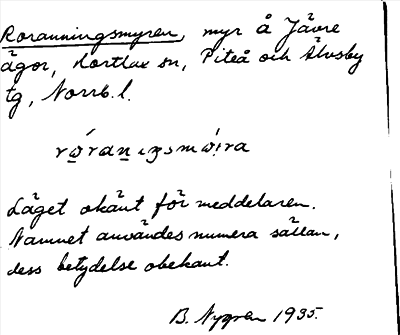 Roranningsmyren, myr å Jävre
ägor, Hortlax sn, Piteå och Älvsby
tg, Norrb. l.
Läget okänt för meddelaren.
Namnet användes numera sällan,
dess betydelse obekant.
B. Nygren 1935.